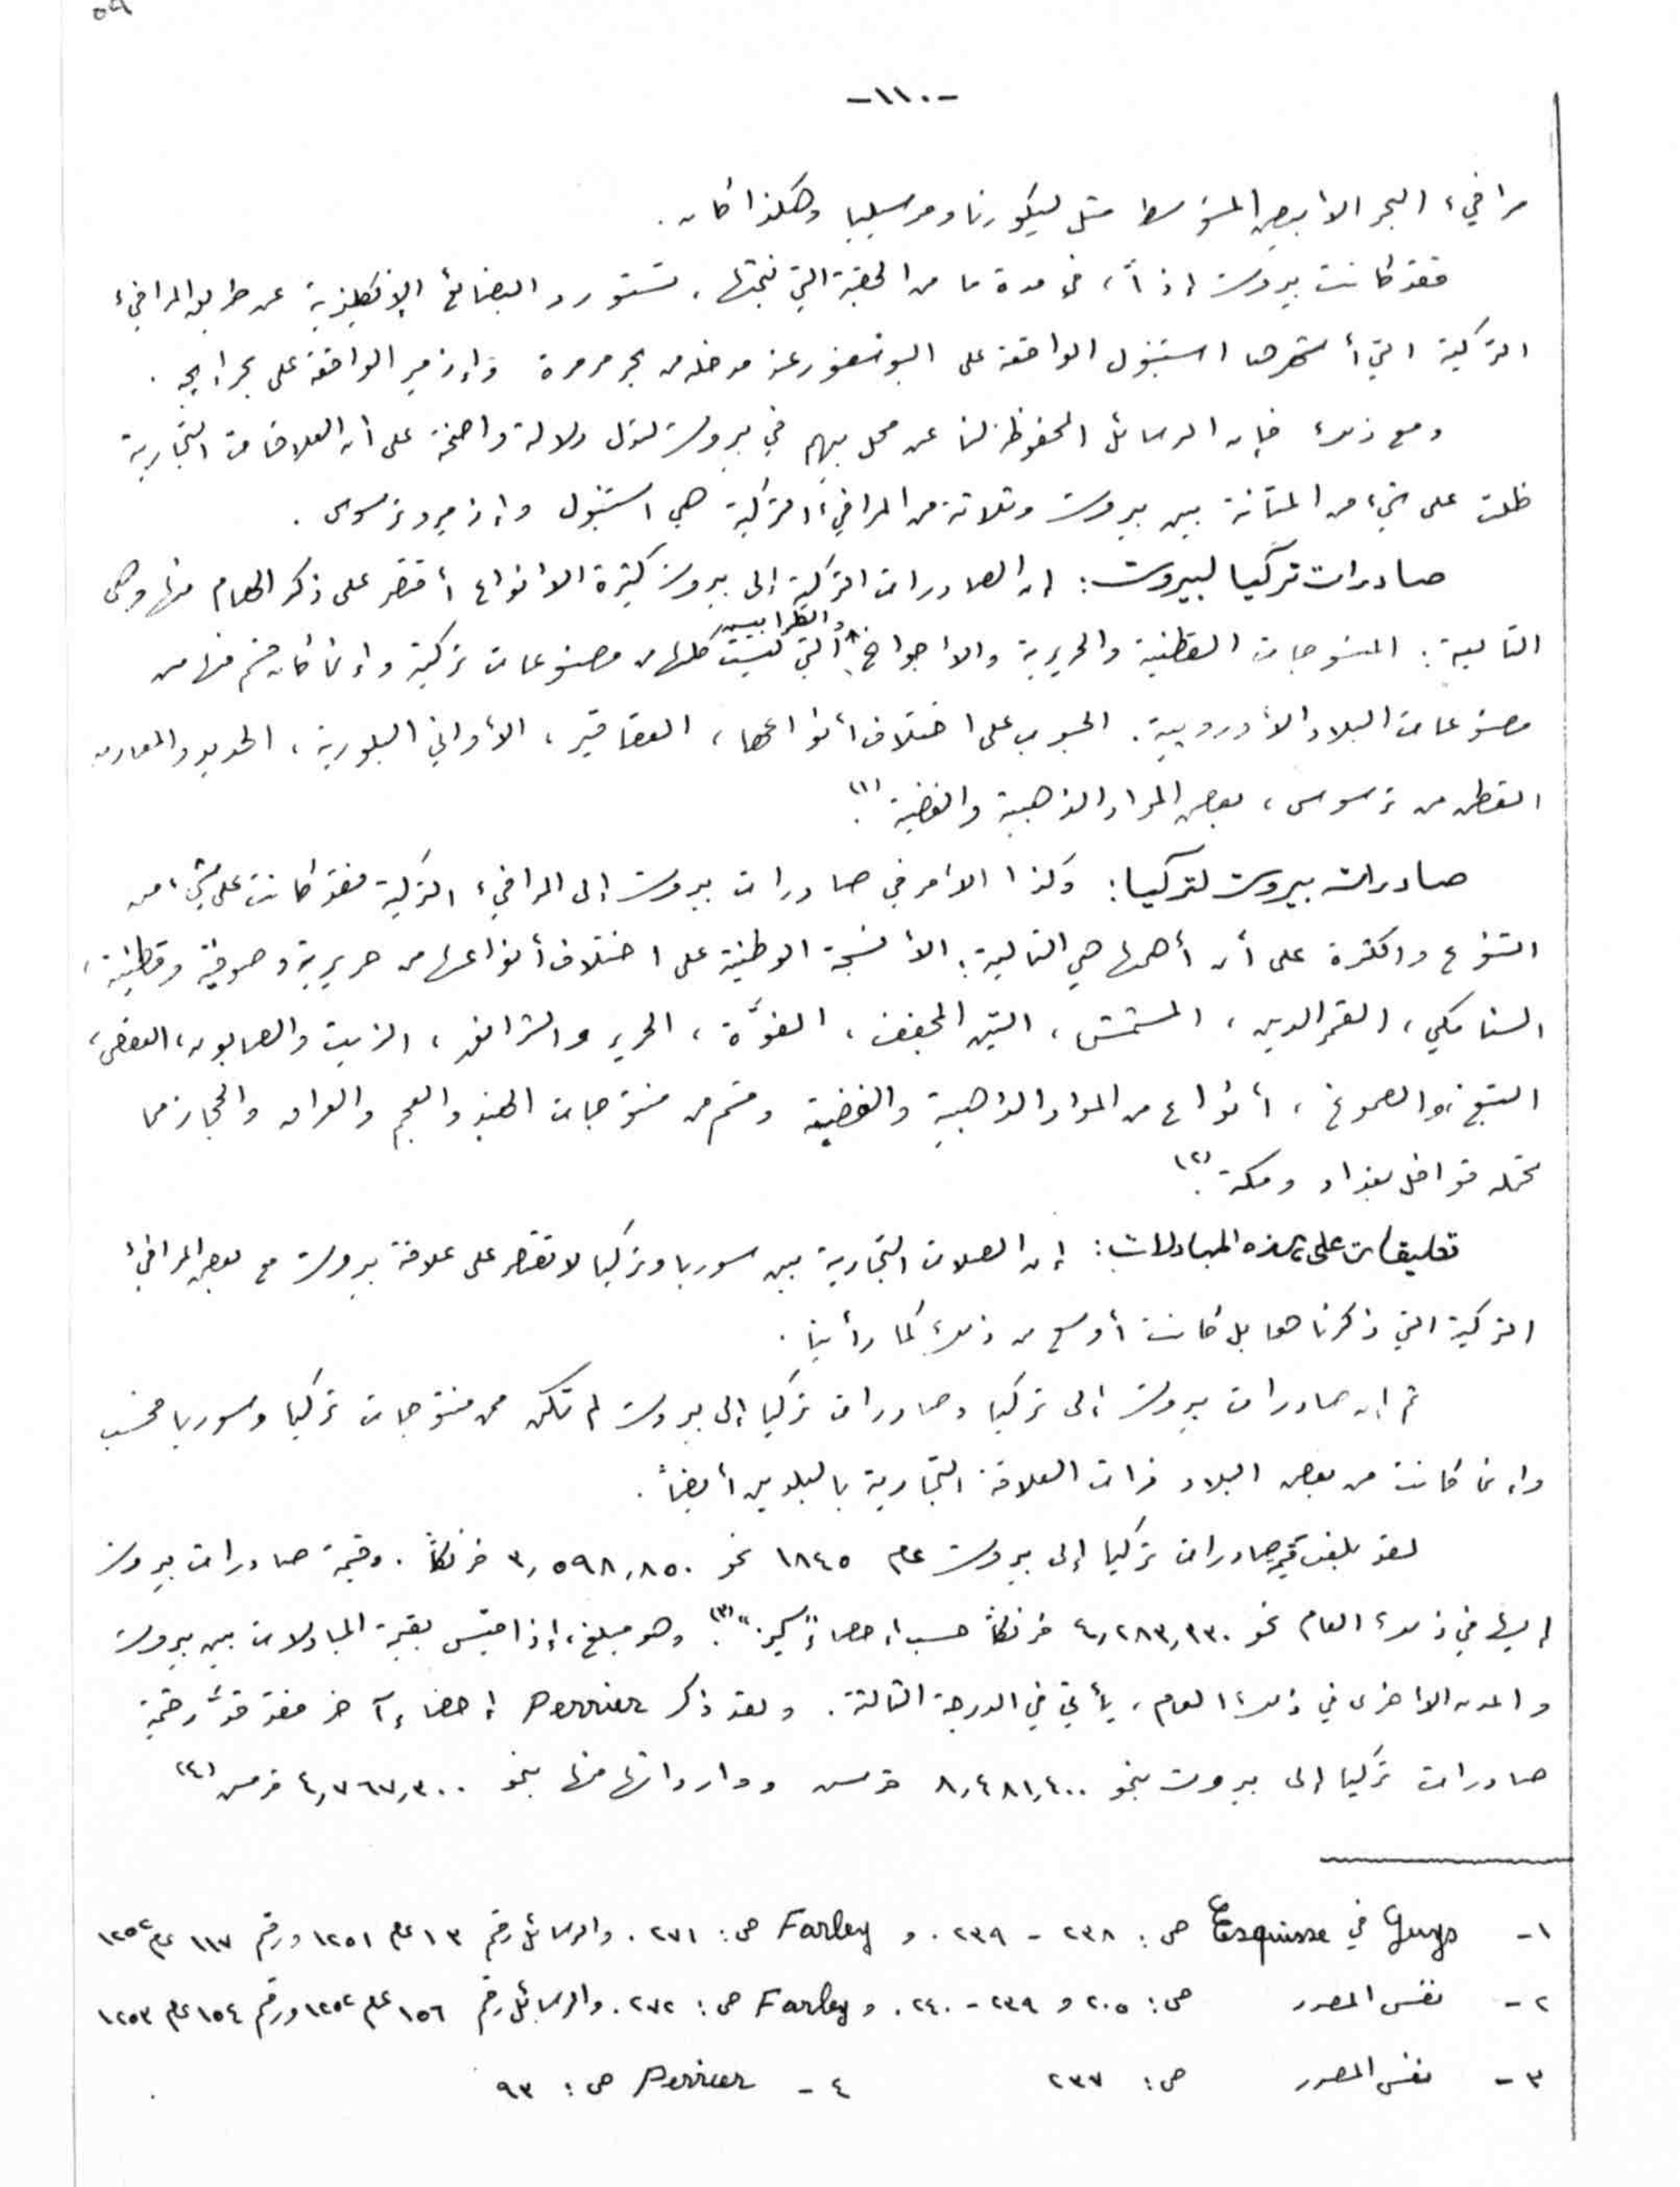 -١١٠-
مرافيء البحر الابيض المتوسط مثل ليكورنا ومرسيليا وهكذا كان.
فقد كانت بيروت إذاً، في مدة ما من الحقبة التي نبحثها، تستورد البضائع الإنكليزية عن طريق المرافيء
التركية التي أشهرها استنبول الواقعة على البوسفور عند مدخله من بحر مرمرة وإزمير الواقعة على بحر إيجه.
ومع ذلك فإن الرسائل المحفوظة لنا عن محل بيهم في بيروت تدل دلالة واضحة على أن العلاقات التجارية
ظلت على شيء من المتانة بين بيروت وثلاثة من المرافيء التركية هي استنبول وإزمير وترسوس.
صادرات تركيا لبيروت: إن الصادرات التركية إلى بيروت كثيرة الانواع أقتصر على ذكر الهام منها وهي
والطرابيش
التالية: المنسوجات القطنية والحريرية والاجواخ، التي ليست كلها من مصنوعات تركية وإنما كان قسم منها من
مصنوعات البلاد الأوروبية. الحبوب على اختلاف أنواعها، العقاقير، الأواني البلورية، الحديد والمعادن
القطن من ترسوس، بعض المواد الذهبية والفضية (١).
صادرات بيروت لتركيا: وكذا الامر في صادرات بيروت إلى المرافيء التركية فقد كانت على شيء من
التنوع والكثرة على أن أهمها هي التالية: الأنسجة الوطنية على اختلاف أنواعها من حريرية وصوفية وقطنية،
السنامكي، القمر الدين، المشمش، التين المجفف، الفوَّة، الحرير والشرانق، الزيت والصابون، العفص،
التبغ، والصموغ، أنواع من المواد الذهبية والفضية وقسم من منتوجات الهند والعجم والعراق والحجاز مما
تحمله قوافل بغداد ومكة (٢).
تعليقات على هذه المبادلات: إن الصلات التجارية بين سوريا وتركيا لا تقتصر على علاقة بيروت مع بعض المرافيء
التركية التي ذكرناها بل كانت أوسع من ذلك كما رأينا.
ثم إن صادرات بيروت إلى تركيا وصادرات تركيا إلى بيروت لم تكن من منتوجات تركيا وسوريا فحسب
وإنما كانت من بعض البلاد ذات العلاقة التجارية بالبلدين أيضاً.
لقد بلغت قيمة صادرات تركيا إلى بيروت عام ١٨٤٥ نحو ٣,٥٩٨,٨٥٠ فرنكاً. وقيمة صادرات بيروت
إليها في ذلك العام نحو ٤,٢٨٣,٩٣٠ فرنكاً حسب إحصاء "كيز" (٣). وهو مبلغ، إذا قيس بقيمة المبادلات بين بيروت
والمدن الاخرى في ذلك العام، يأتي في الدرجة الثالثة. ولقد ذكر Perrier إحصاء آخر فقد قدَّر قيمة
صادرات تركيا إلى بيروت بنحو ٨,٤٨١,٤٠٠ قرس ووارداتها منها بنحو ٤,٧٦٧,٣٠٠ قرس (٤)
١- Guys في Esquisse ص: ٢٣٨ - ٢٣٩. و Farley ص: ٢٧١. والرسائل رقم ١٣ عام ١٢٥١ ورقم ١١٧ عام ١٢٥٢
٢- نفس المصدر ص: ٢٠٥ و ٢٣٩ - ٢٤٠. و Farley ص: ٢٧٢. والرسائل رقم ١٥٦ عام ١٢٥٢ ورقم ١٥٤ عام ١٢٥٣
٣- نفس المصدر ص: ٢٣٧ ٤- Perrier ص: ٩٣